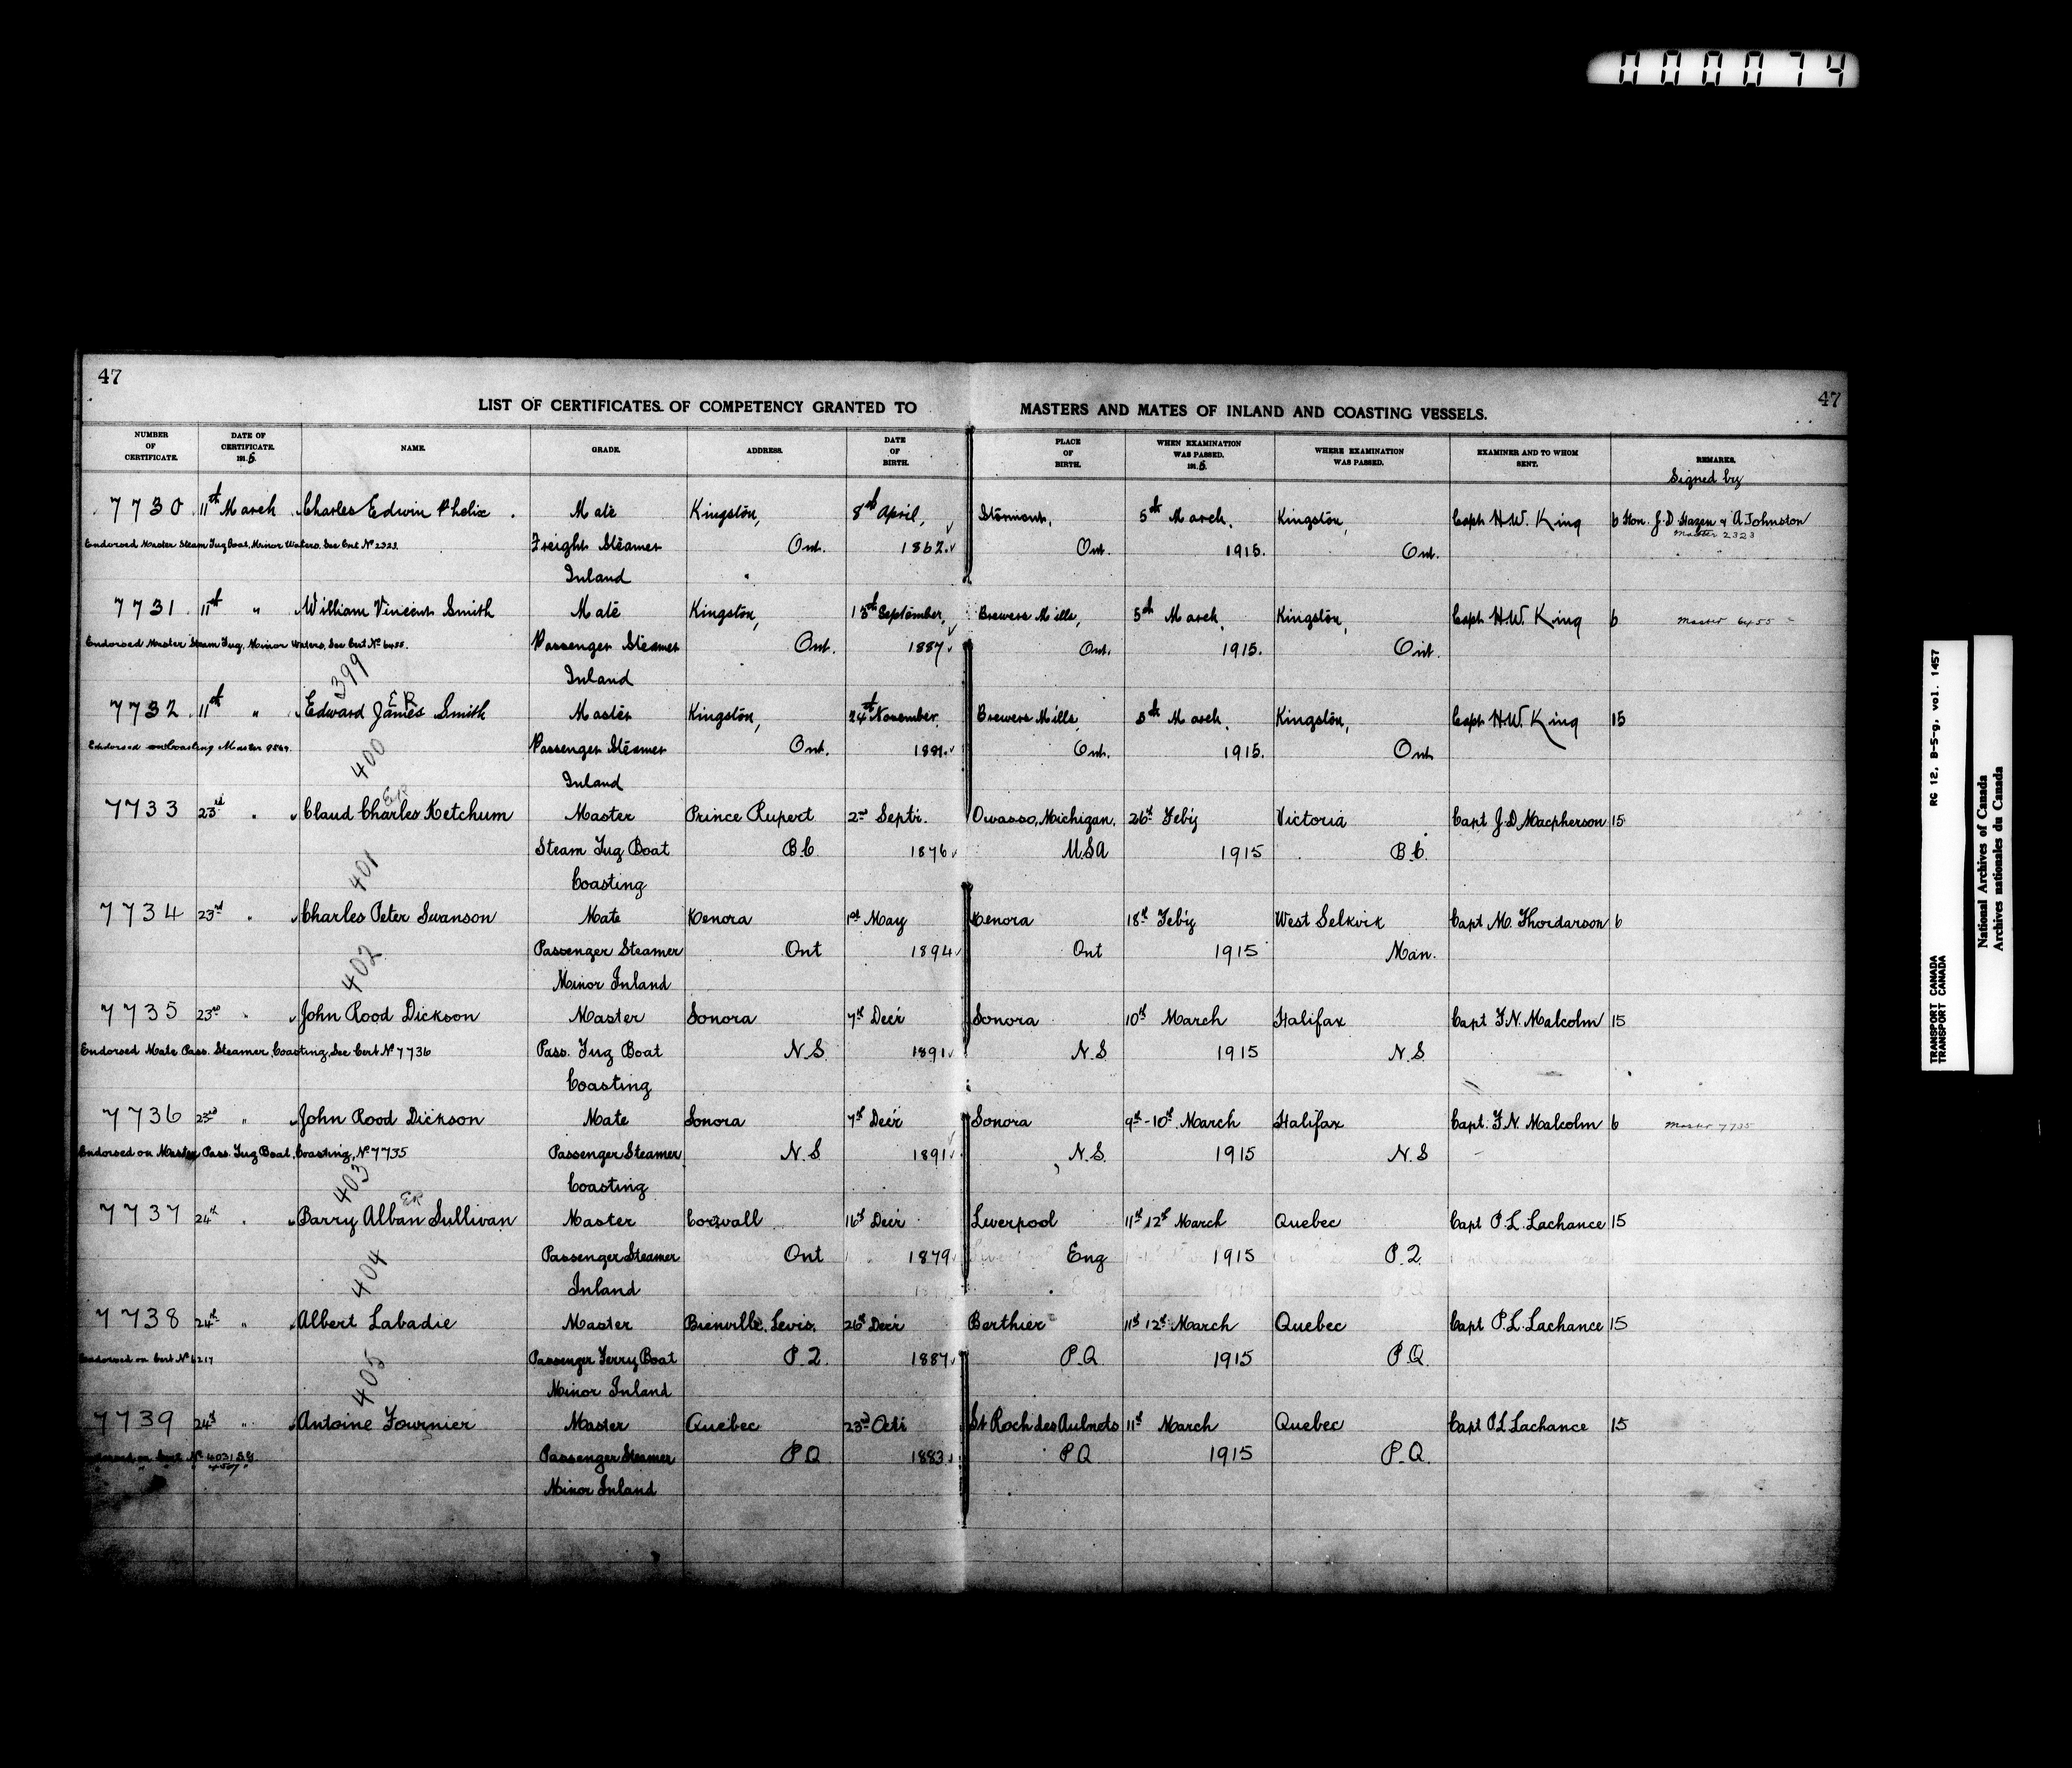 000074
47
47
LIST OF CERTIFICATES OF COMPETENCY GRANTED TO MASTERS AND MATES OF INLAND AND COASTING VESSELS.
NUMBER OF CERTIFICATE. DATE OF CERTIFICATE. 1915. NAME. GRADE. ADDRESS. DATE OF BIRTH. PLACE OF BIRTH. WHEN EXAMINATION WAS PASSED. 1915. WHERE EXAMINATION WAS PASSED. EXAMINER AND TO WHOM SENT. REMARKS.
Signed by
7730 11th March Charles Edwin Phelix Mate Kingston, 8th April, Stormont, 5th March, Kingston, Capt H.W. King 6 Hon. J.D. Hazen & A Johnston
Master 2323
Endorsed Master Steam Tug Boat, Minor Waters. See Cert. No 2323. Freight Steamer Ont. 1862. Ont. 1915. Ont.
Inland
7731 11th " William Vincent Smith Mate Kingston, 15th September, Brewers Mills, 5th March, Kingston, Capt H.W. King 6 Master 6455
Endorsed Master Steam Tug, Minor Waters, See Cert. No 6455. Passenger Steamer Ont. 1887. Ont. 1915. Ont.
399 Inland
ER
7732 11th " Edward James Smith Master Kingston, 24th November Brewers Mills, 5th March, Kingston, Capt H.W. King 15
Endorsed on Coasting Master 9869. Passenger Steamer Ont. 1881. Ont. 1915. Ont
400 Inland
ER
7733 23rd " Claud Charles Ketchum Master Prince Rupert 2nd Septr. Owasso, Michigan. 26th Feb'y Victoria Capt J.D. Macpherson 15
Steam Tug Boat B.C. 1876 U.S.A 1915 B.C.
401 Coasting
7734 23rd " Charles Peter Swanson Mate Kenora 1st May Kenora 18th Feb'y West Selkirk Capt M. Thordarson 6
Passenger Steamer Ont 1894 Ont 1915 Man.
402 Minor Inland
7735 23rd " John Rood Dickson Master Sonora 7th Dec'r Sonora 10th March Halifax Capt F.N. Malcolm 15
Endorsed Mate Pass. Steamer, Coasting, See Cert No 7736 Pass. Tug Boat N.S. 1891 N.S 1915 N.S.
Coasting
7736 23rd " John Rood Dickson Mate Sonora 7th Dec'r Sonora 9th-10th March Halifax Capt. F.N. Malcolm 6 Master 7735
Endorsed on Master Pass. Tug Boat, Coasting, No 7735 Passenger Steamer N.S. 1891 N.S. 1915 N.S
403 Coasting
ER
7737 24th " Barry Alban Sullivan Master Cornwall 16th Dec'r Liverpool 11th 12th March Quebec Capt P.L. Lachance 15
Passenger Steamer Ont 1879 Eng 1915 P.Q.
404 Inland
7738 24th " Albert Labadie Master Bienville, Levis. 26th Dec'r Berthier 11th 12th March Quebec Capt P.L. Lachance 15
Endorsed on Cert No 6217 Passenger Ferry Boat P.Q 1887 P.Q 1915 P.Q.
405 Minor Inland
7739 24th " Antoine Fournier Master Quebec 23rd Oct'r St Roch des Aulnets 11th March Quebec Capt P.L Lachance 15
Endorsed on Cert. No Passenger Steamer P.Q 1883 P.Q 1915 P.Q.
Minor Inland
TRANSPORT CANADA RG 12, B-5-g, vol. 1457
TRANSPORT CANADA
National Archives of Canada
Archives nationales du Canada